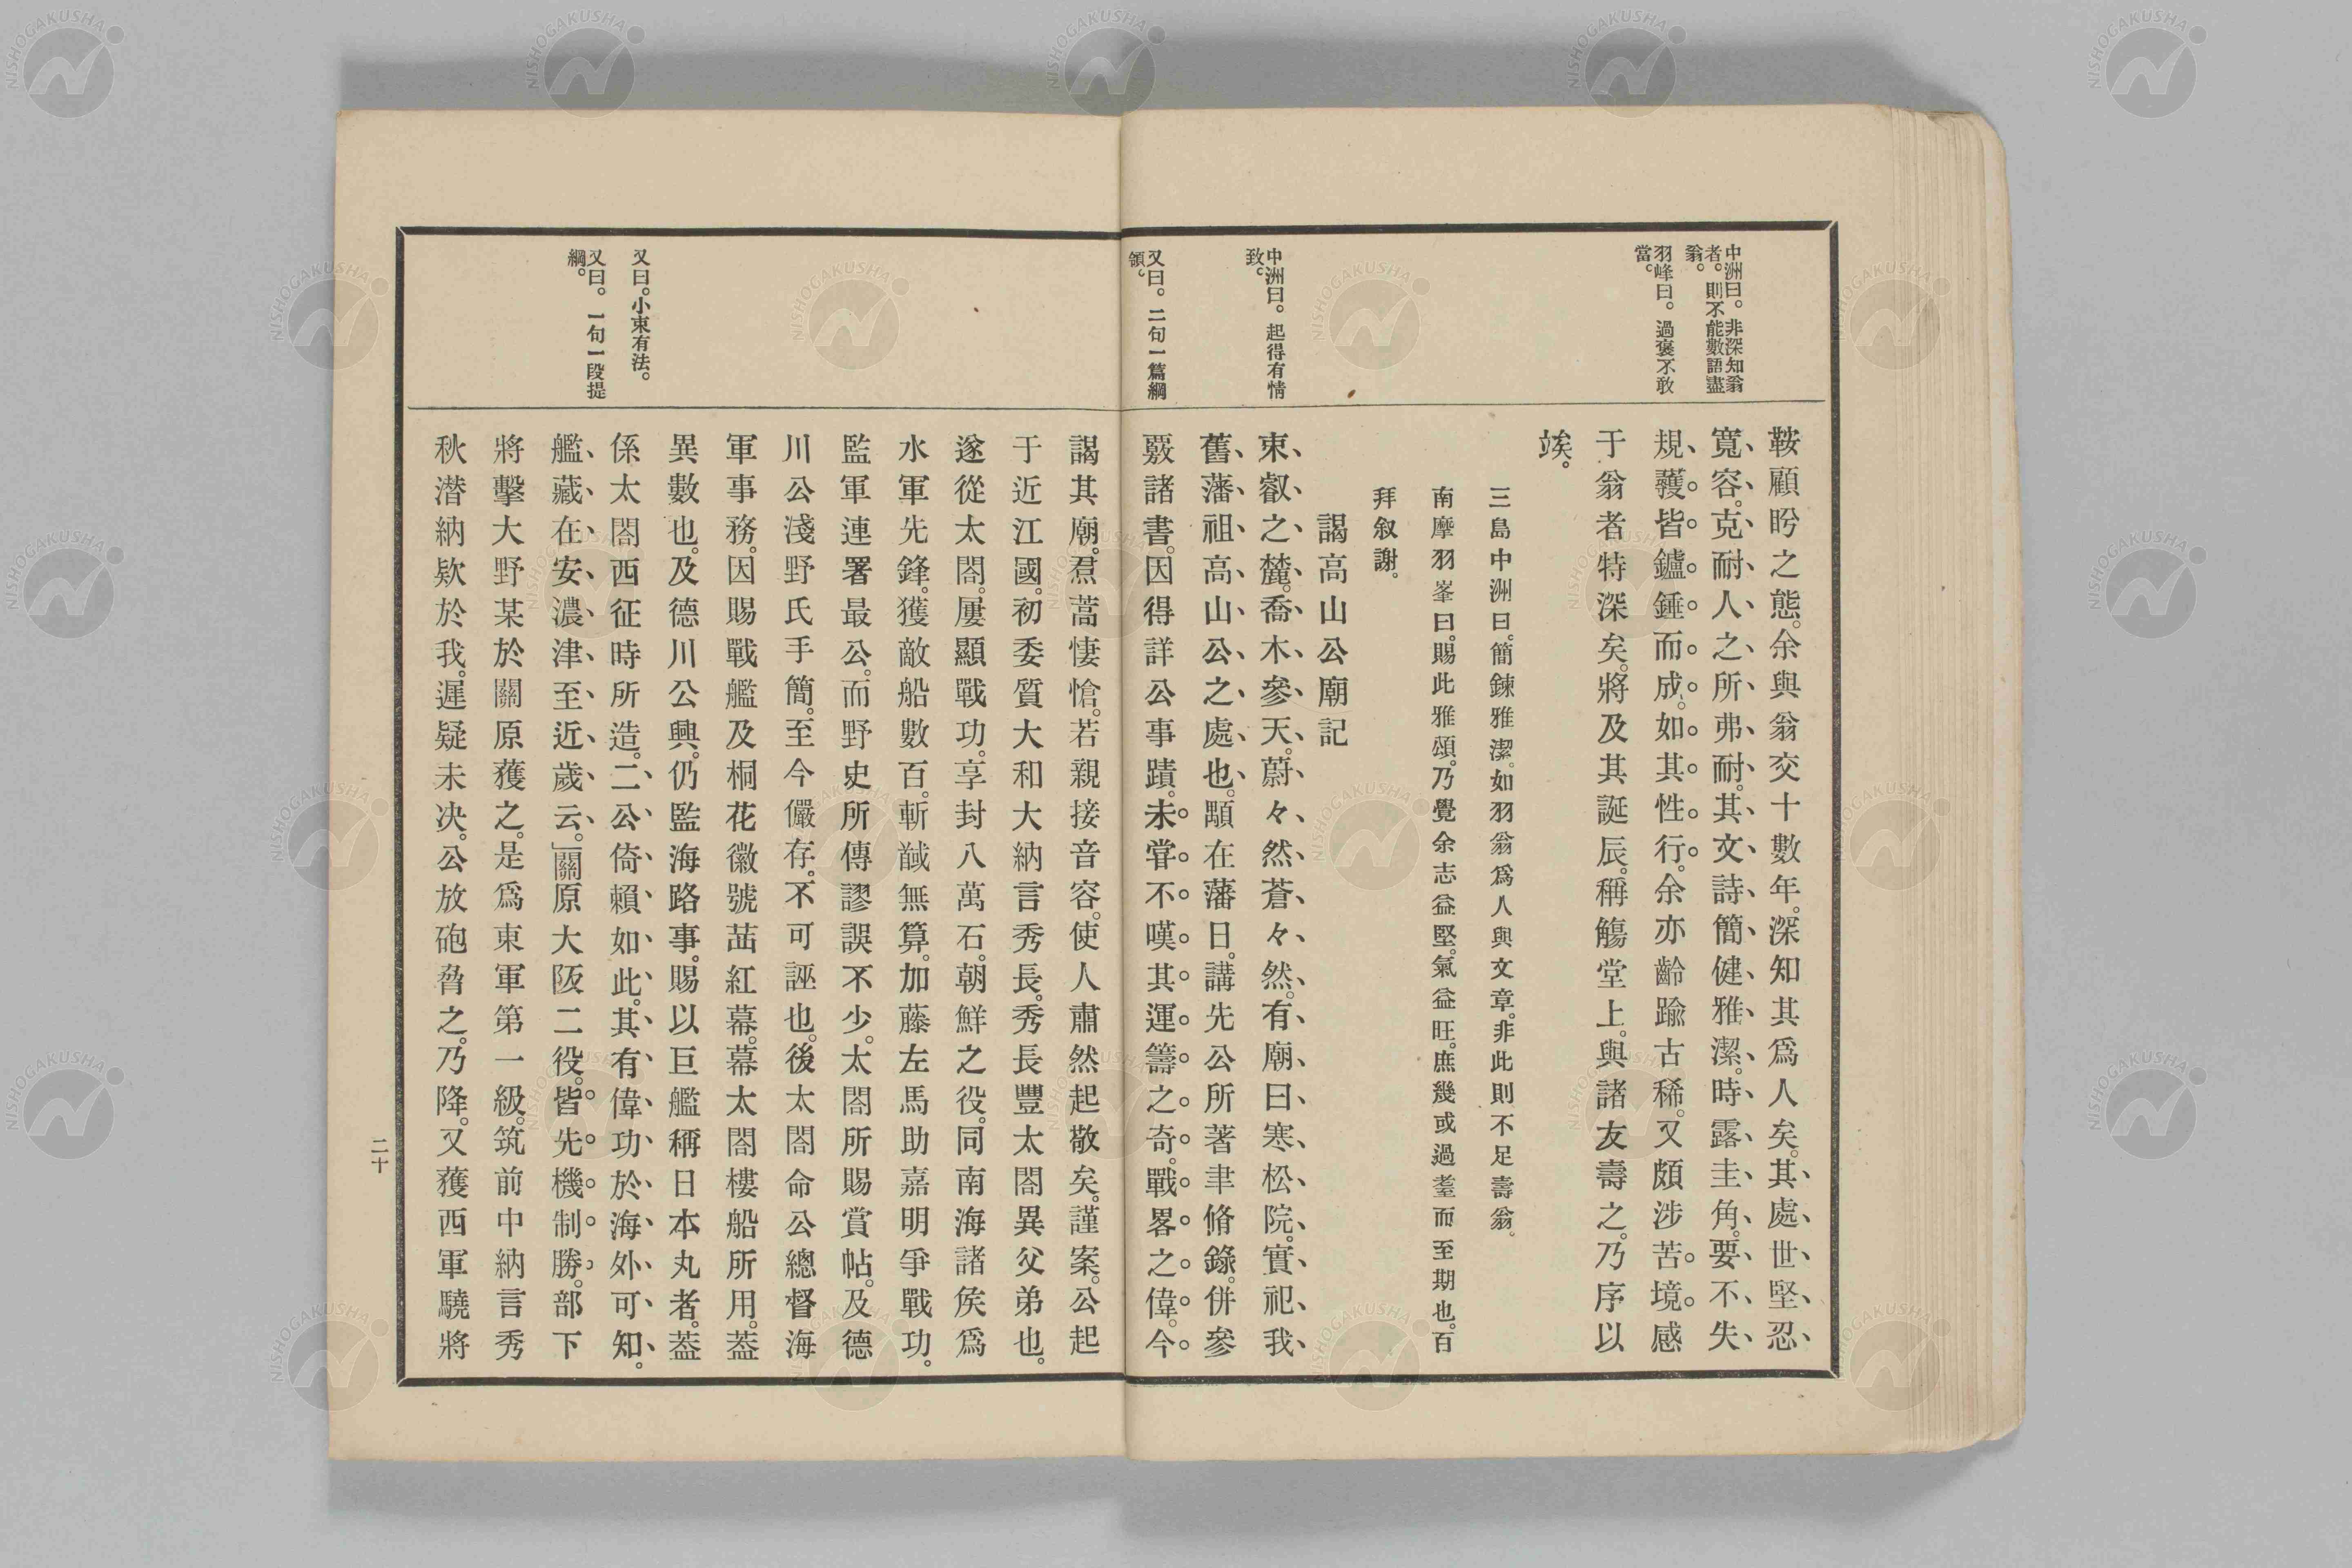 中洲曰。非深知翁
者。則不能數語盡
翁。
羽峰曰。過褒不敢
當。
中洲曰。起得有情
致。
又曰。二句一篇綱
領。
鞍顧盻之態。余與翁交十數年。深知其爲人矣。其處世堅忍
寬容。克耐人之所弗耐。其文詩簡健雅潔。時露圭角。要不失
規䕶。皆鑪錘而成。如其性行。余亦齡踰古稀。又頗涉苦境。感
于翁者特深矣。將及其誕辰。稱觴堂上。與諸友壽之。乃序以
竢。
三島中洲曰。簡鍊雅潔。如羽翁爲人與文章。非此則不足壽翁。
南摩羽峯曰。賜此雅頌。乃覺余志益堅。氣益旺。庶幾或過耋而至期也。百
拜叙謝。
謁高山公廟記
東叡之麓。喬木參天。蔚々然蒼々然。有廟曰寒松院。實祀我
舊藩祖高山公之處也。顒在藩日。講先公所著聿脩錄。併參
覈諸書。因得詳公事蹟。未甞不嘆其運籌之奇。戰畧之偉。今
又曰。小束有法。
又曰。一句一段提
綱。
謁其廟。焄蒿悽愴。若親接音容。使人肅然起敬矣。謹案。公起
于近江國。初委質大和大納言秀長。秀長豐太閤異父弟也。
遂從太閤。屢顯戰功。享封八萬石。朝鮮之役。同南海諸矦爲
水軍先鋒。獲敵船數百。斬馘無算。加藤左馬助嘉明爭戰功。
監軍連署最公。而野史所傳謬誤不少。太閤所賜賞帖。及德
川公淺野氏手簡。至今儼存。不可誣也。後太閤命公總督海
軍事務。因賜戰艦及桐花徽號茁紅幕。幕太閤樓船所用。葢
異數也。及德川公興。仍監海路事。賜以巨艦稱日本丸者。葢
係太閤西征時所造。二公倚賴如此。其有偉功於海外可知。
艦藏在安濃津至近歲云。」關原大阪二役。皆先機制勝。部下
將擊大野某於關原獲之。是爲東軍第一級。筑前中納言秀
秋潜納欵於我。遲疑未决。公放砲脅之。乃降。又獲西軍驍將
二十
NISHOGAKUSHA